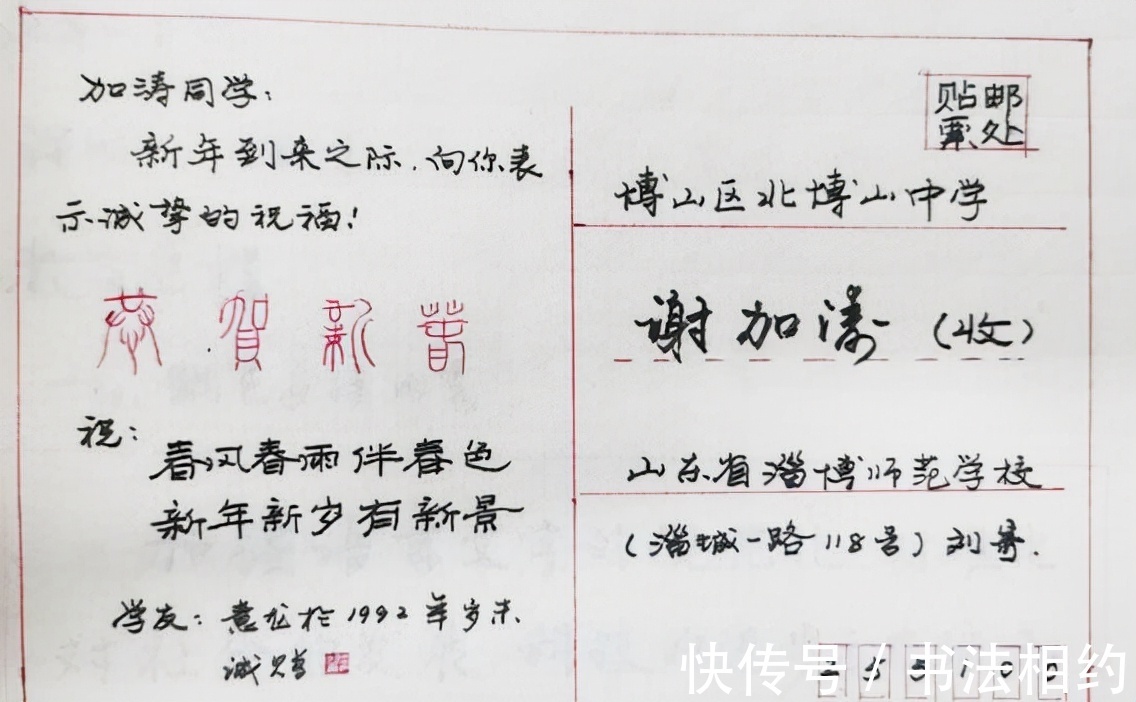 加涛同学:
新年到来之际,向你表
示诚挚的祝福!
恭贺新春
祝:
春风春雨伴春色
新年新岁有新景
学友: 意龙於1992年岁末
诚贺
贴邮
票处
博山区北博山中学
谢加涛 (收)
山东省淄博师范学校
(淄城一路118号) 刘寄.
255100
快传号 / 书法相约